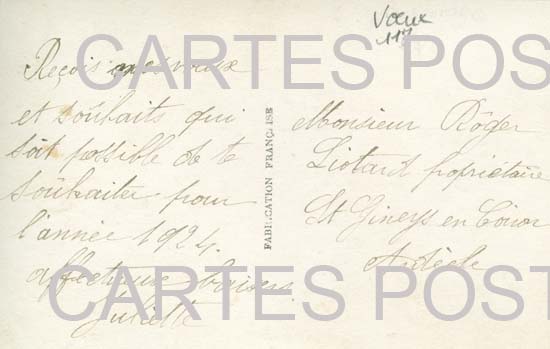 Voeux
117
CARTES POST
Reçois mes voeux
et souhaits qui
soit possible de te
souhaiter pour
l'année 1924.
affectueux baisers
Juliette
FABRICATION FRANÇAISE
Monsieur Roger
Liotard propriétaire
St Gineys en Coiron
Ardèche
CARTES POST